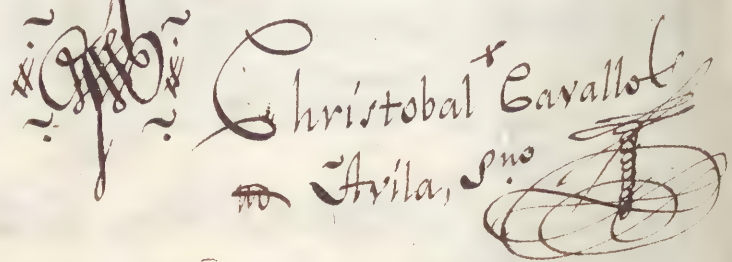 Christobal Cavallo
de Avila, S.no